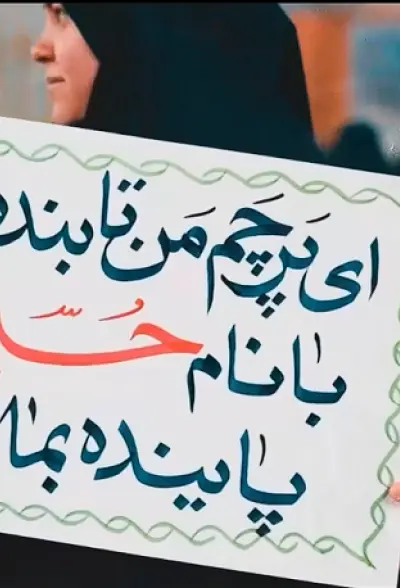 ای پَرچَم مَن تابنده
با نام
پاینده